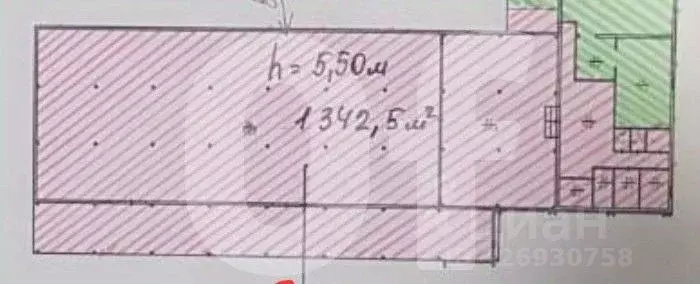 h = 5,50м
1342,5м²
ОF
циан
26930758